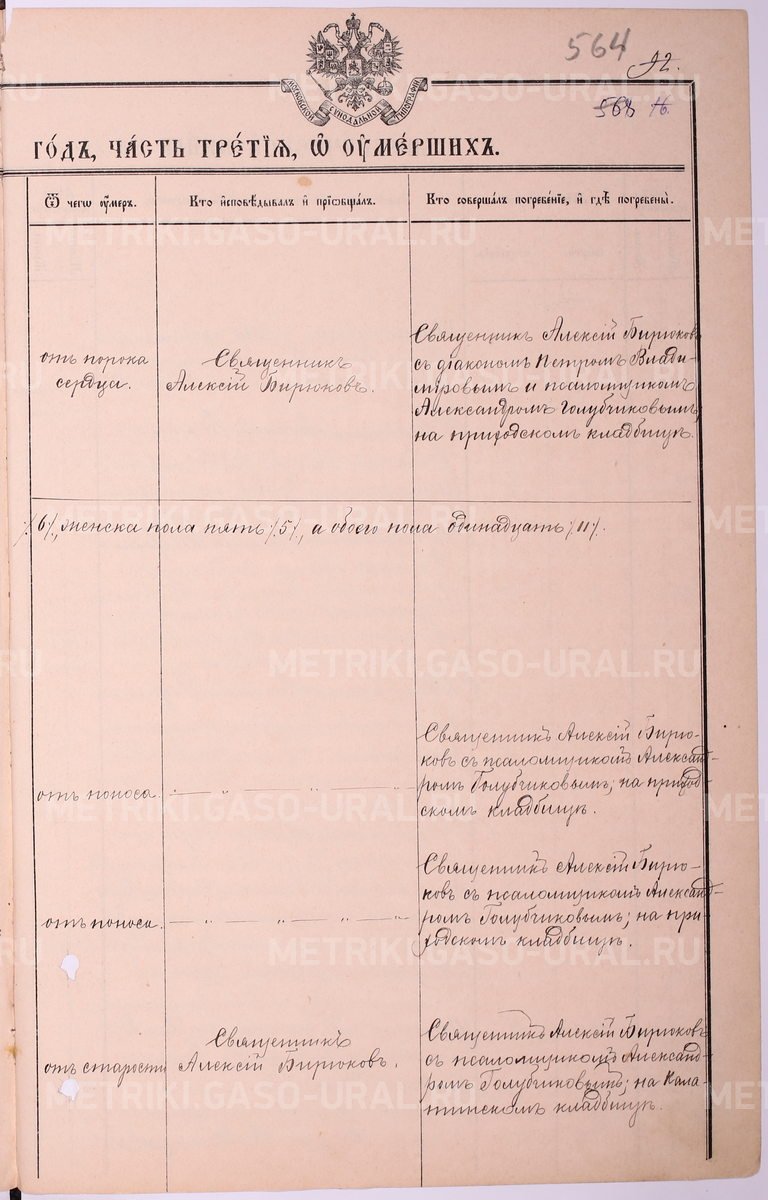 564
92.
568
МОСКОВСКОЙ СУНОДАЛЬНОЙ ТИПОГРАФІИ
го́дъ, ча́сть тре́тїѧ, ѡ҆ ᲂу҆ме́ршихъ.
Ѿ чегѡ ᲂу҆́меръ.
Кто̀ и҆сповѣ́дывалъ и҆ прїѡбща́лъ.
Кто̀ соверша́лъ погребе́нїе, и҆ гдѣ̀ погребены̀.
отъ порока
сердца.
Священникъ
Алексій Бирюковъ.
Священникъ Алексій Бирюковъ
съ діакономъ Петромъ Влади-
мировымъ и псаломщикомъ
Александромъ Голубчиковымъ,
на приходскомъ кладбищѣ.
/6/, женска пола пять /5/, а обоего пола одинадцать /11/.
отъ поноса.
— „ — „ — „ — „
Священникъ Алексій Бирю-
ковъ съ псаломщикомъ Александ-
ромъ Голубчиковымъ; на приход-
скомъ кладбищѣ.
отъ поноса.
— „ — „ — „ — „
Священникъ Алексій Бирю-
ковъ съ псаломщикомъ Александ-
ромъ Голубчиковымъ; на при-
ходскомъ кладбищѣ.
отъ старости
Священникъ
Алексій Бирюковъ.
Священникъ Алексій Бирюковъ
съ псаломщикомъ Александ-
ромъ Голубчиковымъ; на Кала-
тинскомъ кладбищѣ.
METRIKI.GASO-URAL.RU